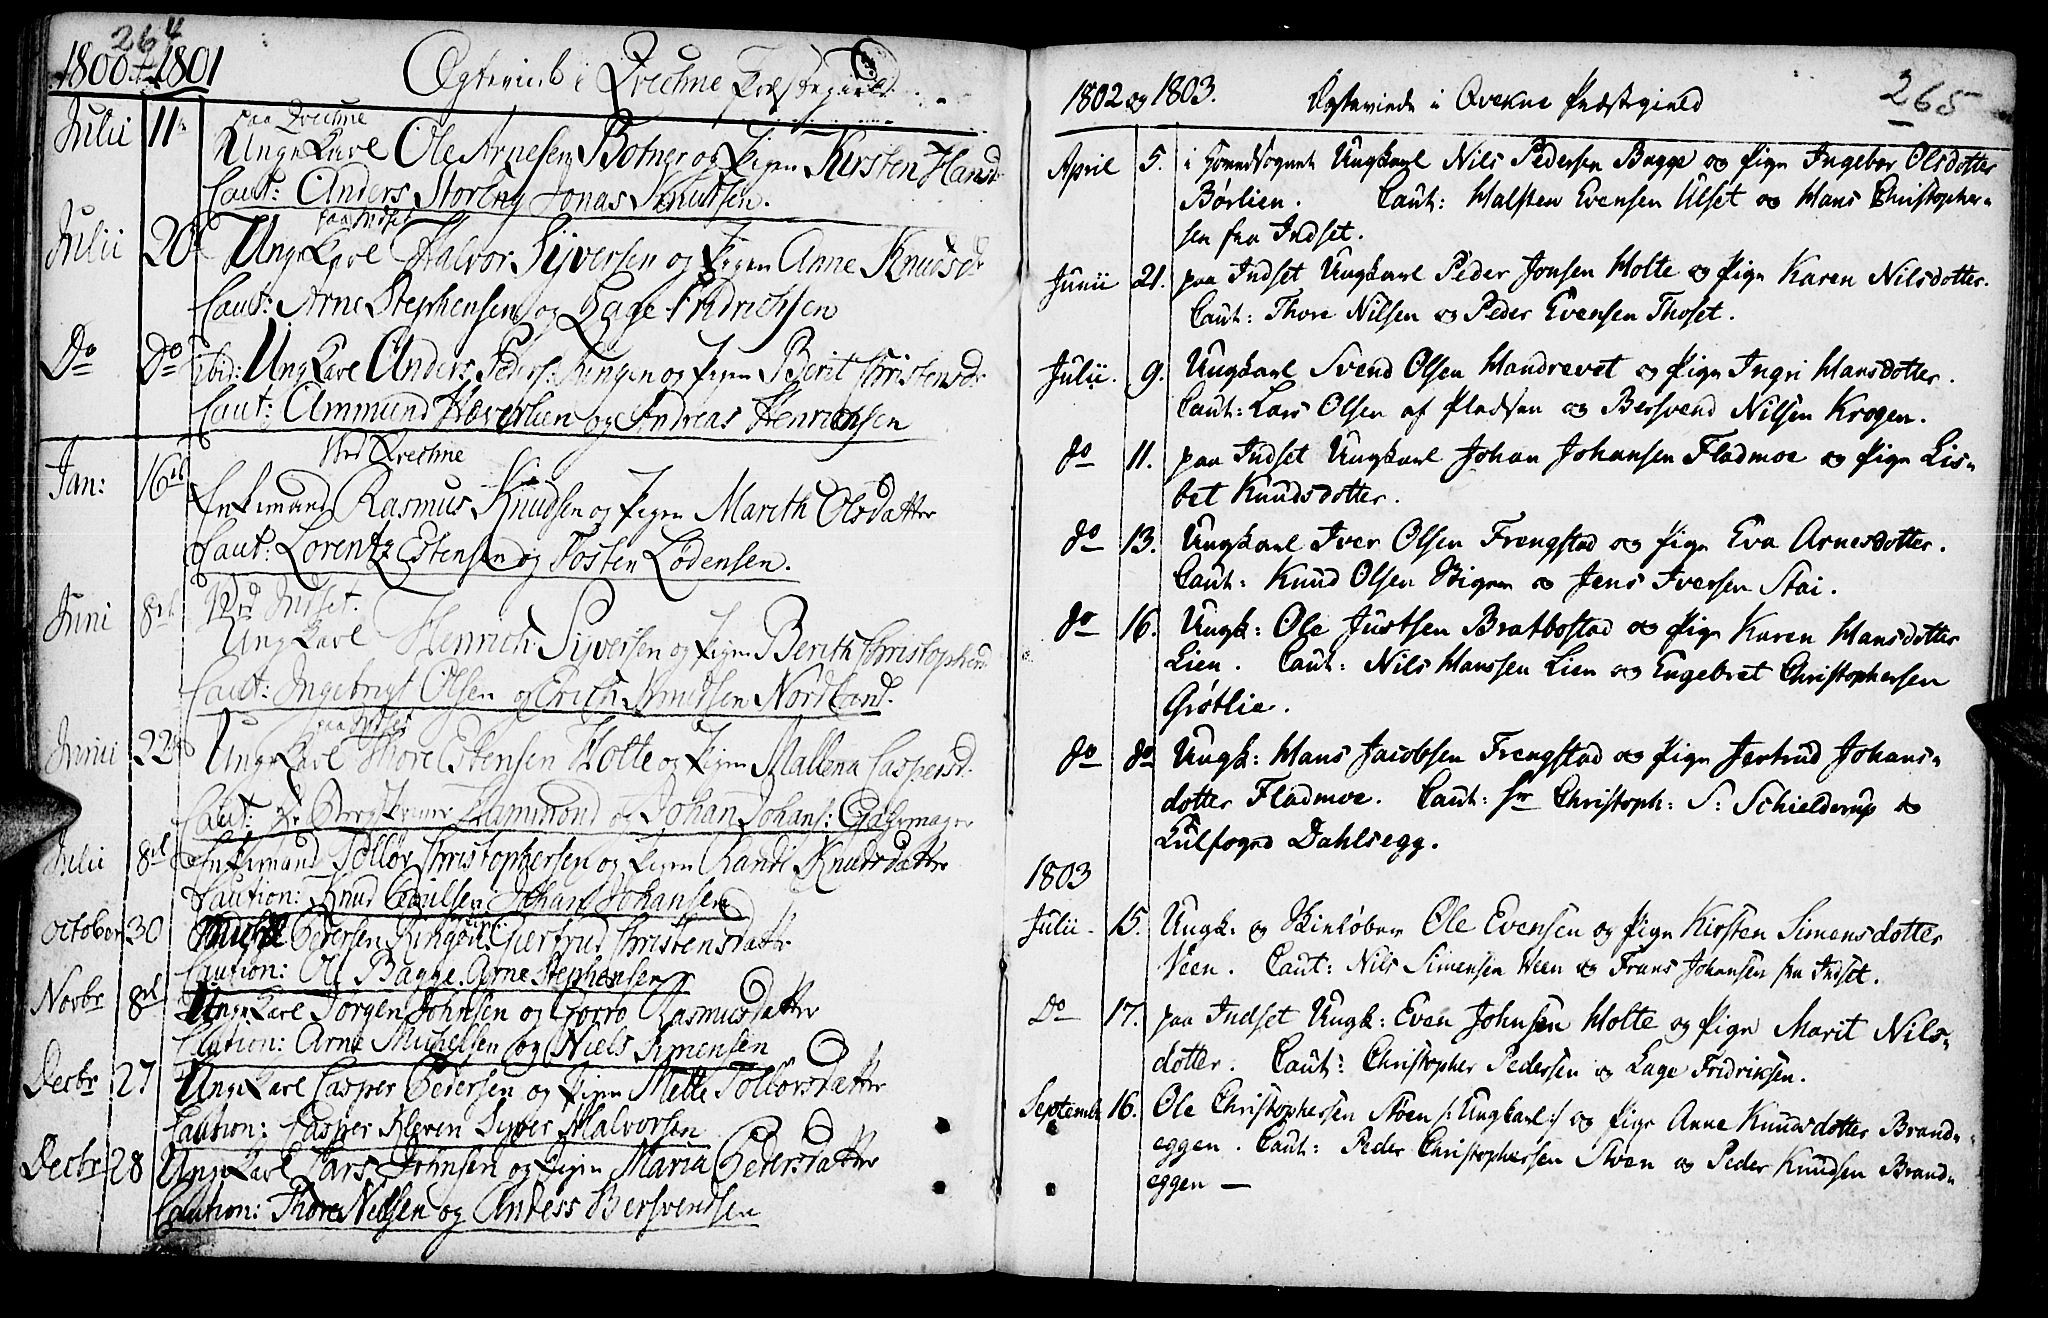 264
1800 & 1801 Egteviede i Qvechne Præstegield
paa Qvechne
Julii 11te Ung Karl Ole Arnesen Botner og Pigen Kirsten Hansd:
Caut: Anders Storeng Jonas Knutsen.
paa Indset
Julii 20 Ung Karl Halvor Syversen og Pigen Anne Knudsd:
Caut: Arne Stephensen og Lage Fridrichsen
Do Do ibid: Ung Karl Anders Peders: Ringen og Pigen Berit Christensd:
Caut: Ammund Haversen og Andreas Henrichsen
Ved Qvechne
Jan: 16de Enkemand Rasmus Knudsen og Pigen Marith Olsdatter
Caut: Lorentz Estensen og Tosten Lodensen.
Juni 8de Ved Indset.
Ung Karl Henrich Syversen og Pigen Berith Christophersd
Caut: Ingebrigt Olsen og Erich Knudsen Nordland.
paa Indset
Junii 22de Ung Karl Thore Estensen Holte og Pigen Mallena Caspersd.
Caut: Hr Bergskriver Hammond og Johan Johans: Gartmager
Julii 8de Enkemand Tollov Christophersen og Pigen Randi Knudsdatter
Caution: Knud Poulsen Johan Johansen
October 30 Michel Pedersen Ringen Giertrud Christensdatter
Caution: Ole Bagge. Arne Stephensen
Novbr 8de Ung Karl Jørgen Johnsen og Gorro Rasmusdatter
Caution: Arne Michelsen og Niels Simensen
Decbr 27 Ung Karl Casper Pedersen og Pigen Mette Tollovsdatter
Caution: Casper Kleven Syver Halvorsen
Decbr 28 Ung Karl Lars Johnsen og Pigen Maria Pedersdatter
Caution: Thore Nielsen og Anders Bersvendsen
1802 og 1803. Egteviede i Qvekne Præstegield 265
April 5. i Hovedsognet Ungkarl Nils Pedersen Bagge og Pige Ingebor Olsdotter
Børlien. Caut: Halsten Evensen Ulset og Hans Christopher=
sen fra Indset.
Junii 21. paa Indset Ungkarl Peder Jonsen Holte og Pige Karen Nilsdotter.
Caut: Thore Nilsen og Peder Evensen Thoset.
Julii. 9. Ungkarl Svend Olsen Handrevet og Pige Ingri Hansdotter.
Caut: Lars Olsen af Pladsen og Bersvend Nilsen Krogen.
do 11. paa Indset Ungkarl Johan Johansen Fladmoe og Pige Lis=
bet Knudsdotter.
do 13. Ungkarl Iver Olsen Frengstad og Pige Eva Arnesdotter.
Caut: Knud Olsen Bigen og Jens Iversen Stai.
do 16. Ungk: Ole Justsen Bratbostad og Pige Karen Hansdotter
Lien. Caut: Nils Hanssen Lien og Engebret Christophersen
Grøtlie.
do do Ungk: Hans Jacobsen Frengstad og Pige Jertrud Johans=
dotter Fladmoe. Caut: Hr Christoph: S: Schielderup og
Lulfoged Dahlsegg.
1803
Julii. 15. Ungk: og Skieløber Ole Evensen og Pige Kirsten Simensdotter
Veen. Caut: Nils Simensen Veen og Frans Johansen fra Indset.
Do 17. paa Indset Ungk: Even Johnsen Holte og Pige Marit Nils=
dotter. Caut: Christopher Pedersen og Lage Fridriksen.
Septembr 16. Ole Christophersen Stoen /: Ungkarl :/ og Pige Anne Knudsdotter Brand=
eggen. Caut: Peder Christophersen Stoen og Peder Knudsen Brand=
eggen —